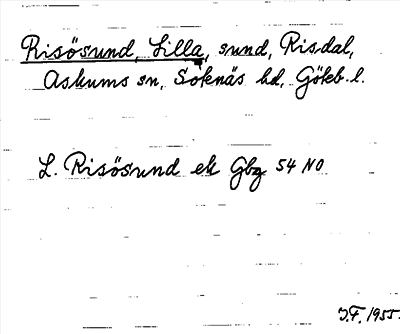 Risösund, Lilla, sund, Risdal,
Askums sn, Sotenäs hd, Göteb. l.
L. Risösund ek Gbg 54 NO
J.F. 1955.